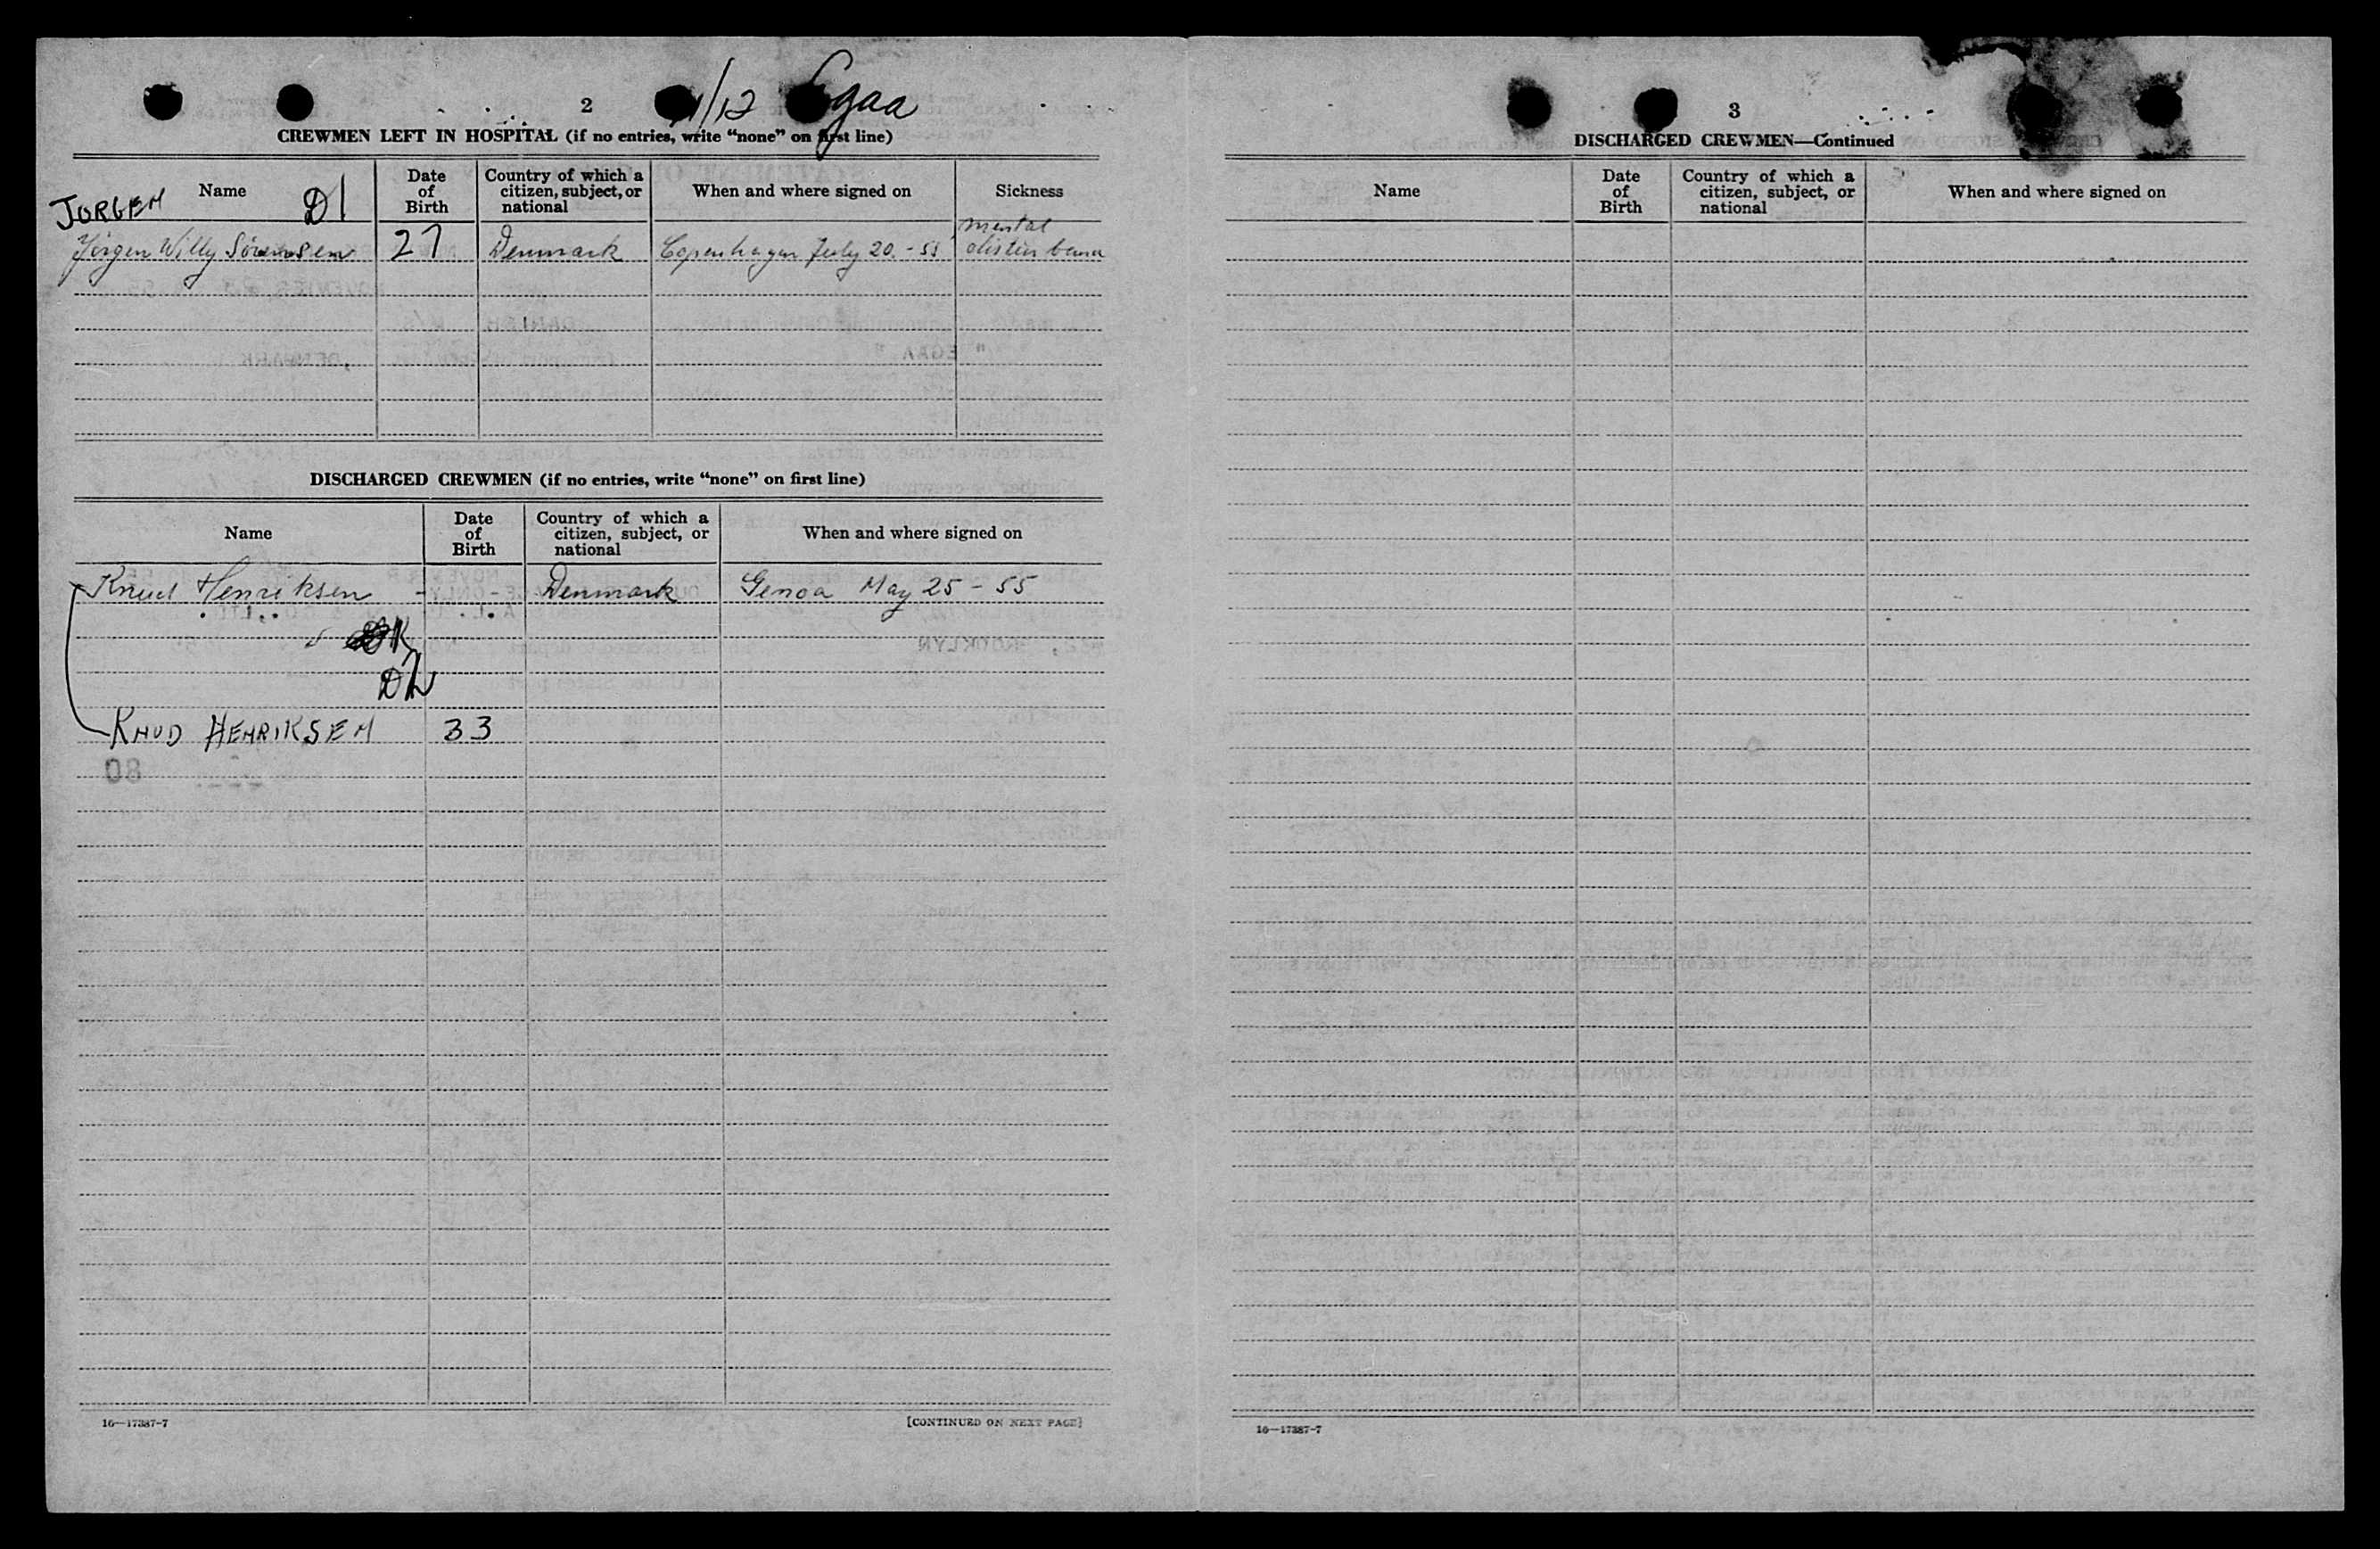 2
11/12 Egaa
CREWMEN LEFT IN HOSPITAL (if no entries, write “none” on first line)
Name
Date of Birth
Country of which a citizen, subject, or national
When and where signed on
Sickness
JORGEN D1
Jörgen Willy Sörensen 27 Denmark Copenhagen July 20.-55 mental
DISCHARGED CREWMEN (if no entries, write “none” on first line)
Name
Date of Birth
Country of which a citizen, subject, or national
When and where signed on
Knud Henriksen - Denmark Genoa May 25 - 55
D2
KNUD HENRIKSEN 33
80
16—17387-7
[CONTINUED ON NEXT PAGE]
3
DISCHARGED CREWMEN—Continued
Name
Date of Birth
Country of which a citizen, subject, or national
When and where signed on
16—17387-7